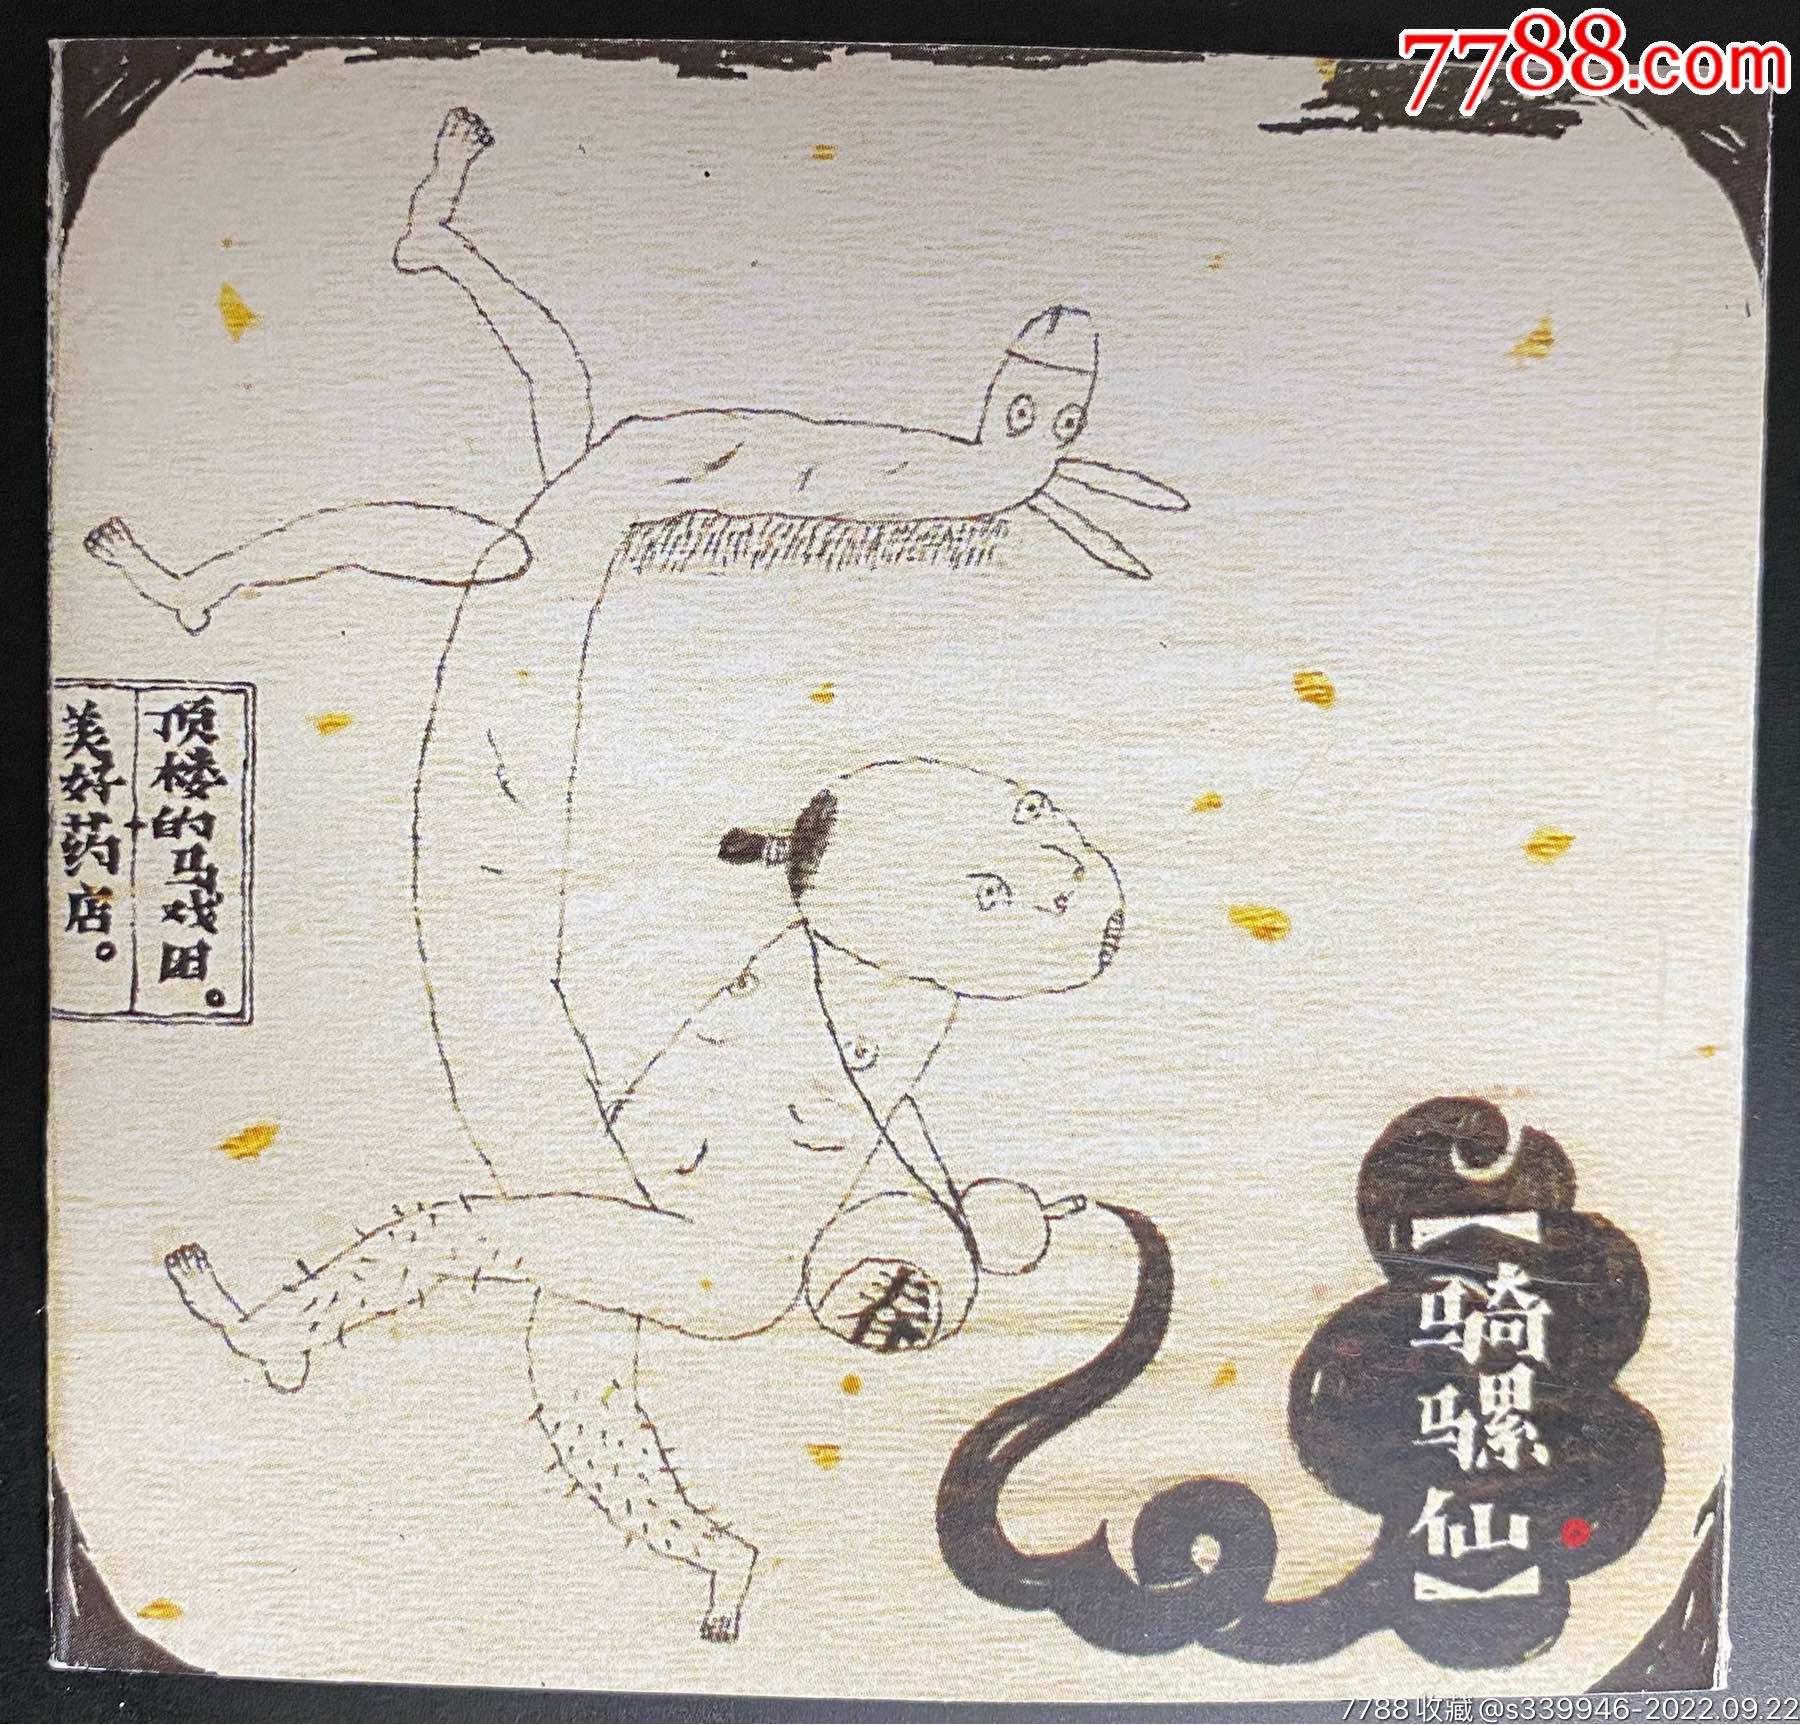 7788.com
顶楼的马戏团。
美好药店。
春
【骑骡仙】
7788收藏@s339946-2022.09.22